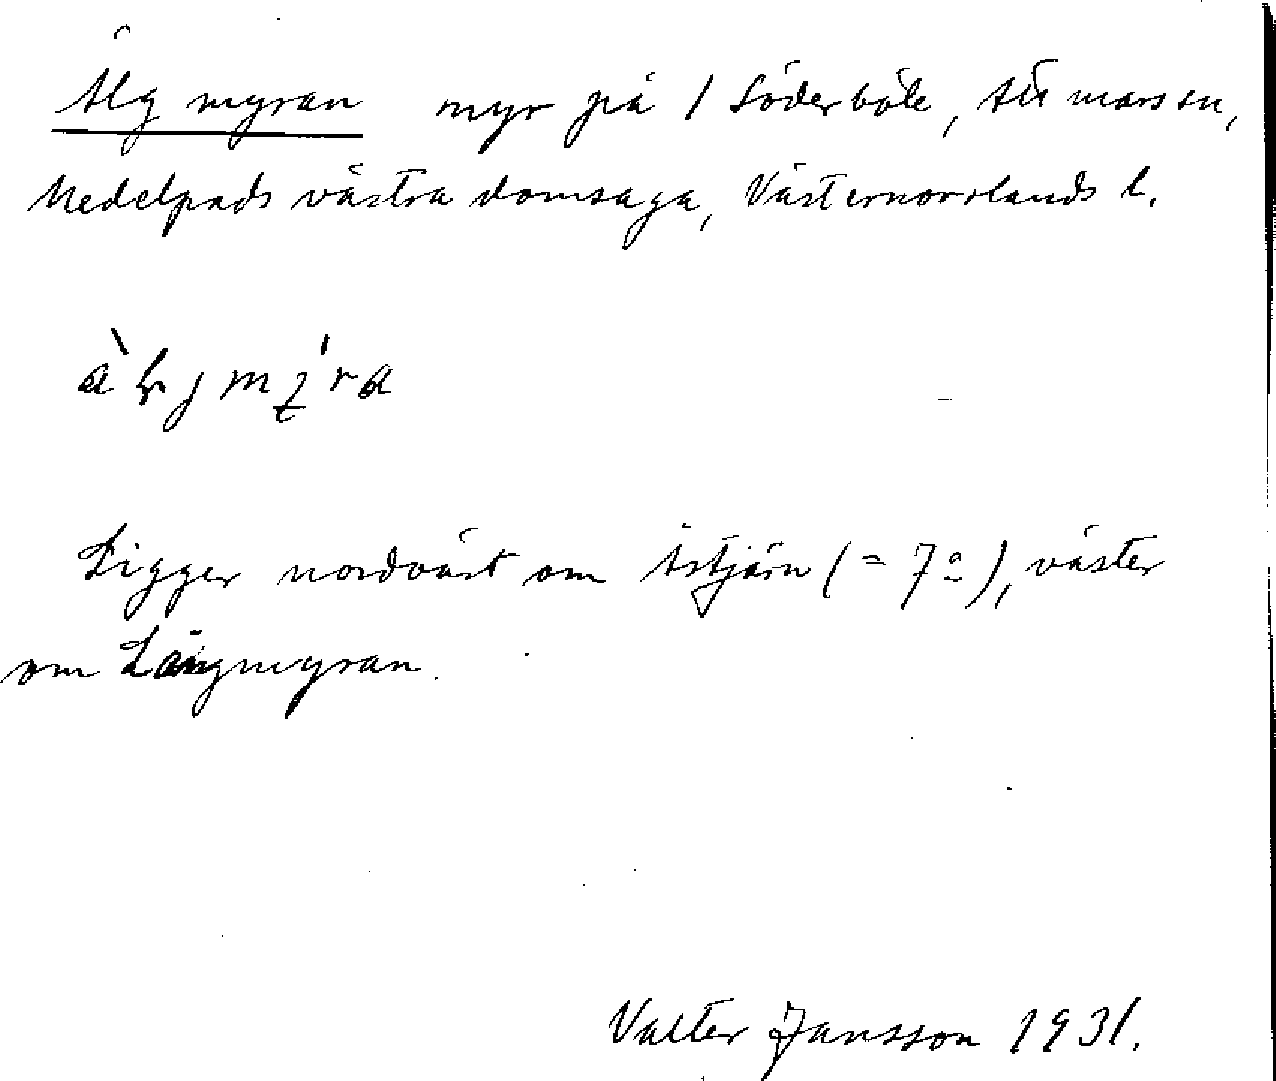 Älgmyran myr på 1 Söderböle, Attmarssn,
Medelpads västra domsaga, Västernorrlands l.
Ligger nordväst om Årstjärn (= 7 a), väster
om Långmyran.
Valter Jansson 1931.